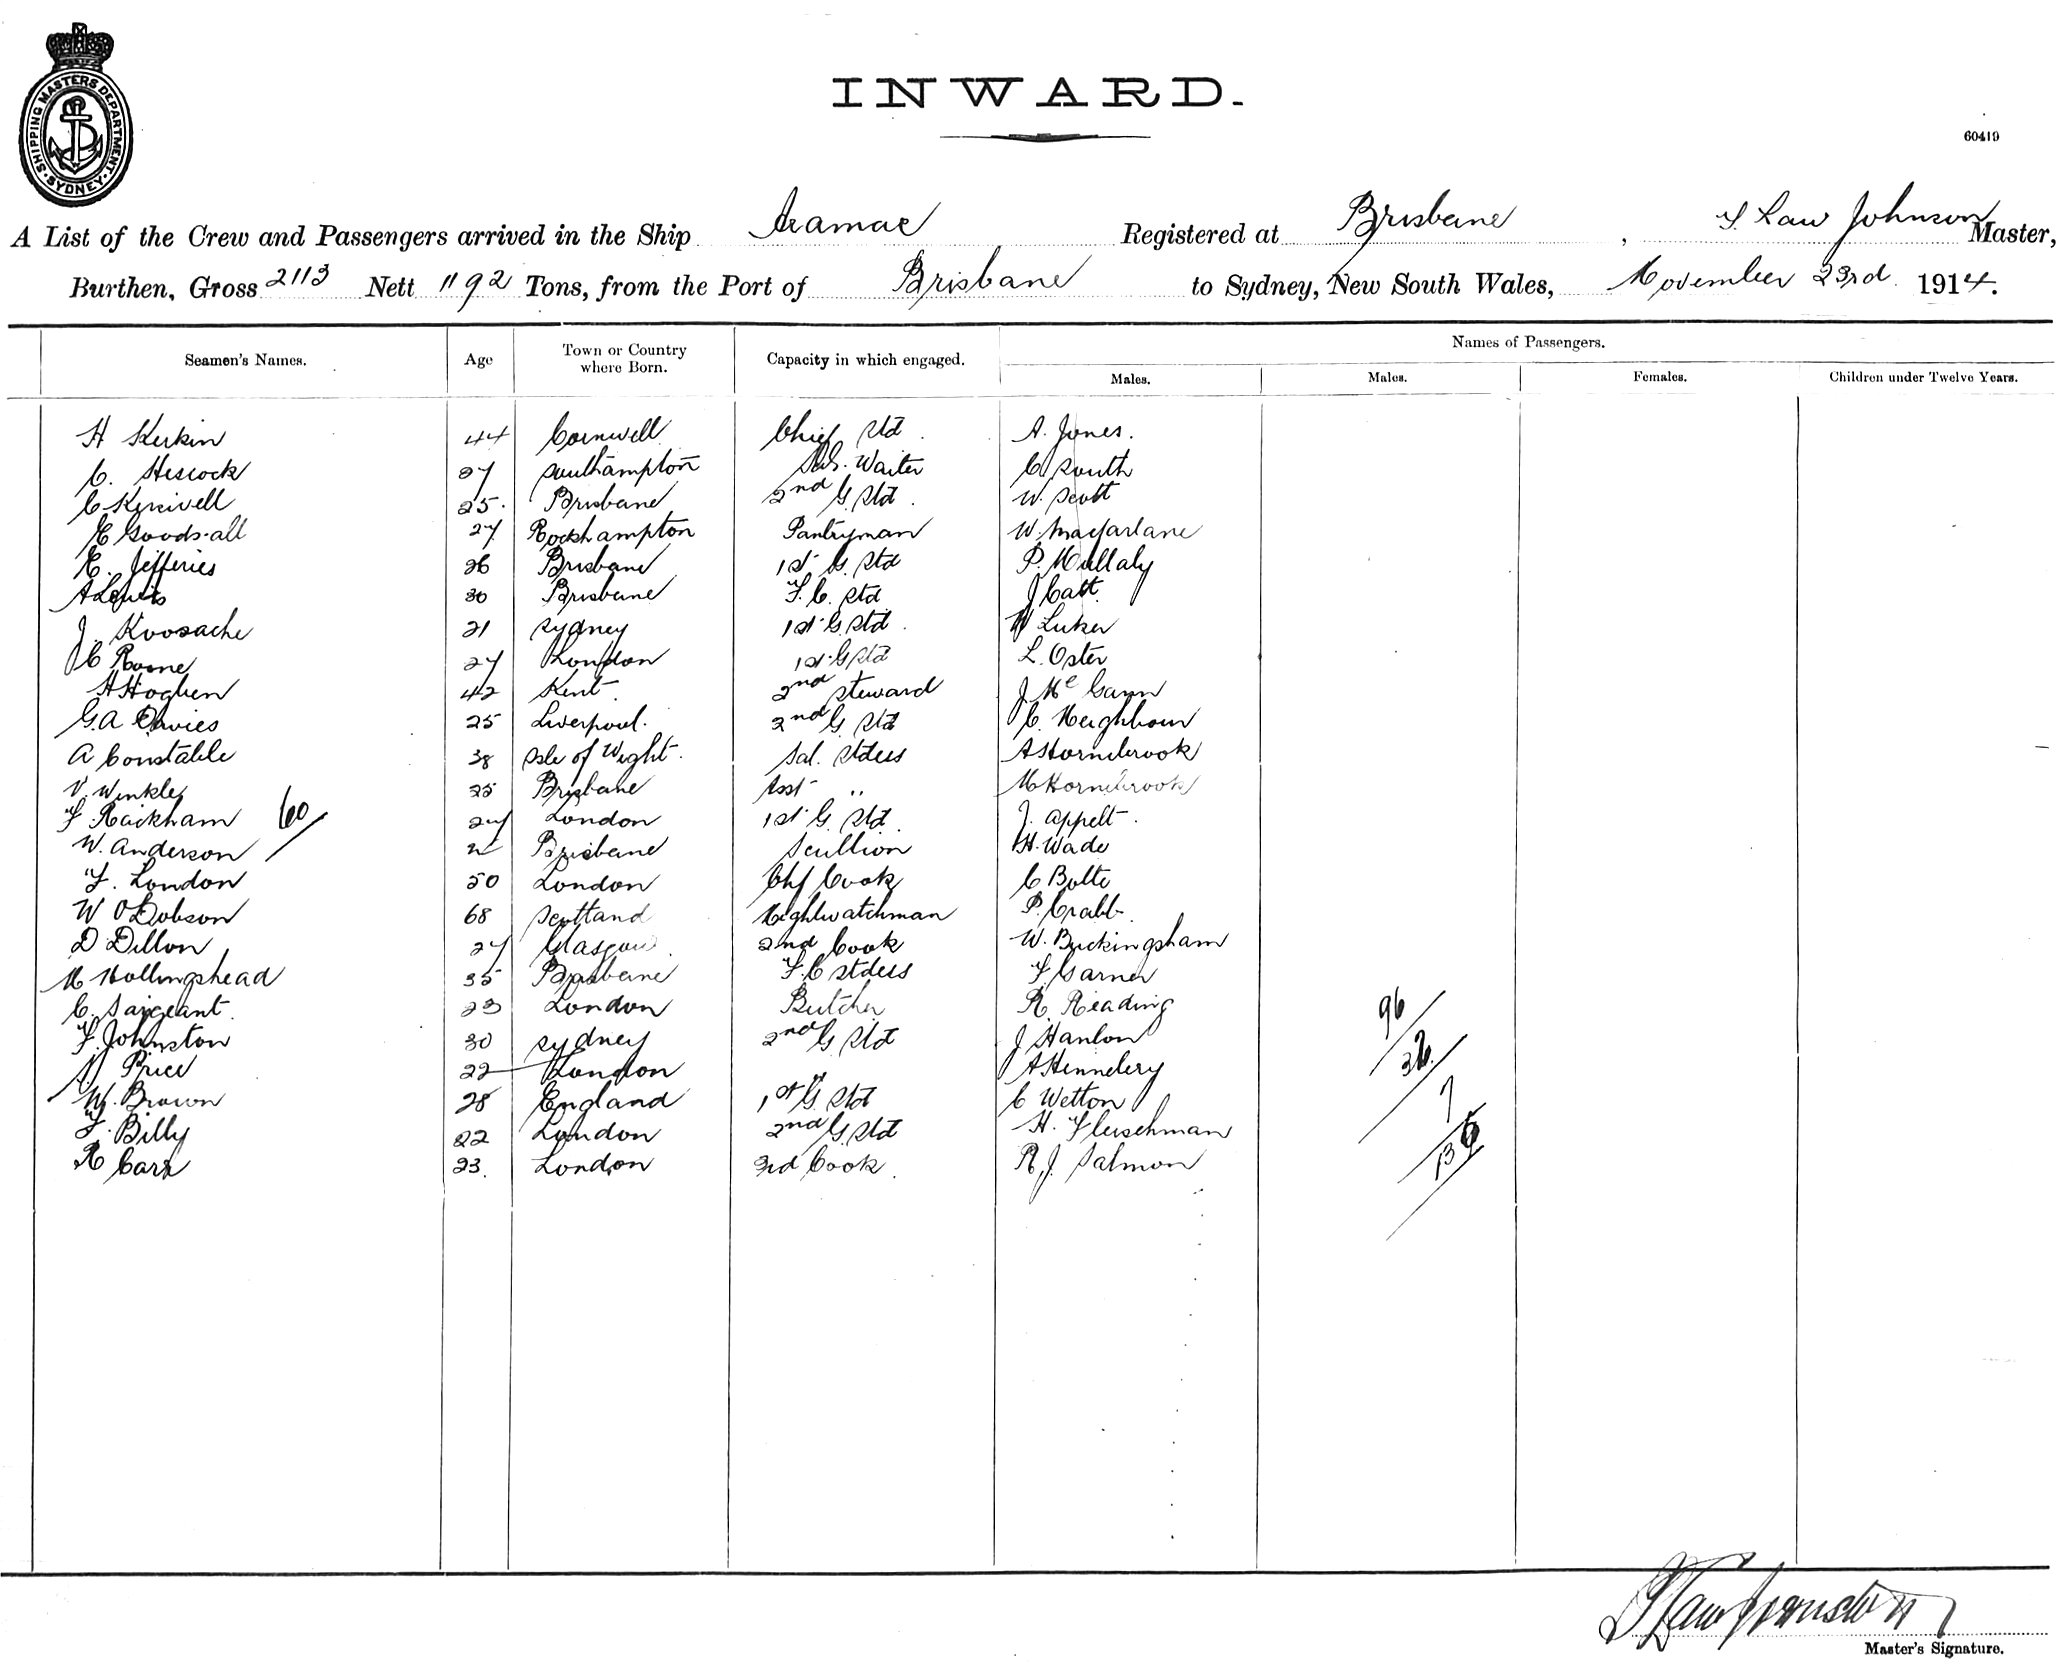 SHIPPING MASTERS DEPARTMENT · SYDNEY ·
INWARD.
60419
A List of the Crew and Passengers arrived in the Ship Aramac Registered at Brisbane, Law Johnson Master,
Burthen, Gross 2113 Nett 1192 Tons, from the Port of Brisbane to Sydney, New South Wales, November 23rd 1914.
Seamen's Names. Age Town or Country where Born. Capacity in which engaged. Names of Passengers.
Males. Males. Females. Children under Twelve Years.
H Kerkin 44 Cornwell Chief Std. A. Jones.
C. Hiscock 27 Southampton Waiter C South
C 25. Brisbane 2nd G. Std. W. Scott
E Goods-all 27 Rockhampton Pantryman W. Macfarlane
E. Jefferies 26 Brisbane 1st G. Std P. Mullaly
A Lewis 30 Brisbane F. C. Std J Catt.
J. 21 Sydney 1st G. Std. W Luker
J C 27 London 1st G Std L. Oster
H Hogben 42 Kent 2nd Steward J McCann
G. A Davies 25 Liverpool. 2nd G. Std C. Neighbour
A Constable 38 Isle of Wight. Sal. Stdess A Hornibrook
V. Winkle 25 Brisbane Asst " M Hornibrook
F Rackham 60 27 London 1st G. Std. J. Appelt.
W. Anderson Brisbane Scullion H. Wade
F. London 50 London Chf Cook C Bolte
W O Dobson 68 Scotland Nightwatchman P. Crabb
D Dillon 27 Glasgow 2nd Cook W. Buckingsham
M Hollingshead 35 Brisbane F. C Stdess F. Garner
C. Sargeant. 23 London Butcher R. Reading 96
F. Johnston 30 Sydney 2nd G. Std J Hanlon 32
Price 22 London " A Hennelery
W. Brown 28 England 1st G. Std C Wetton 7
F. Billy 22 London 2nd G. Std H. Fleischman
R Carr 23. London 3rd Cook. R. J. Salmon
Master's Signature.